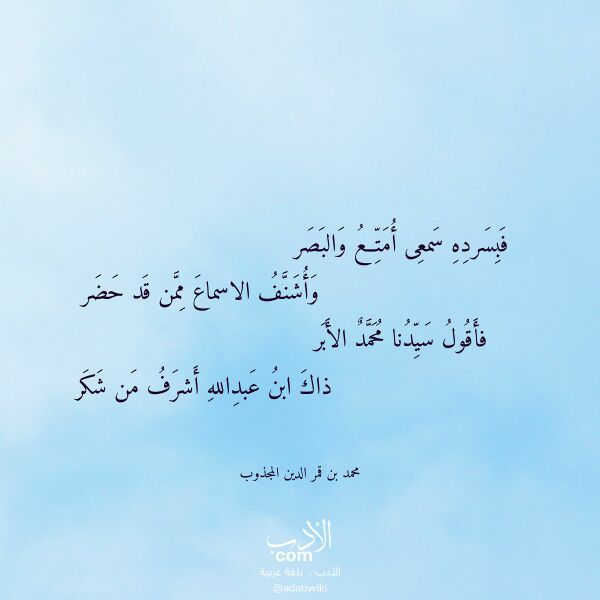 فَبِسَردِهِ سَمعِى أُمَتِّعُ وَالبَصَر
وَأُشَنَّفُ الاسماعَ مِمَّن قَد حَضَر
فأَقُولُ سَيِّدُنا مُحَمَّدٌ الأَبَر
ذاكَ ابنُ عَبدِاللهِ أَشرَفُ مَن شَكَر
محمد بن قمر الدين المجذوب
الأدب
com
الأدب .. بلغة عربية
@adabwiki